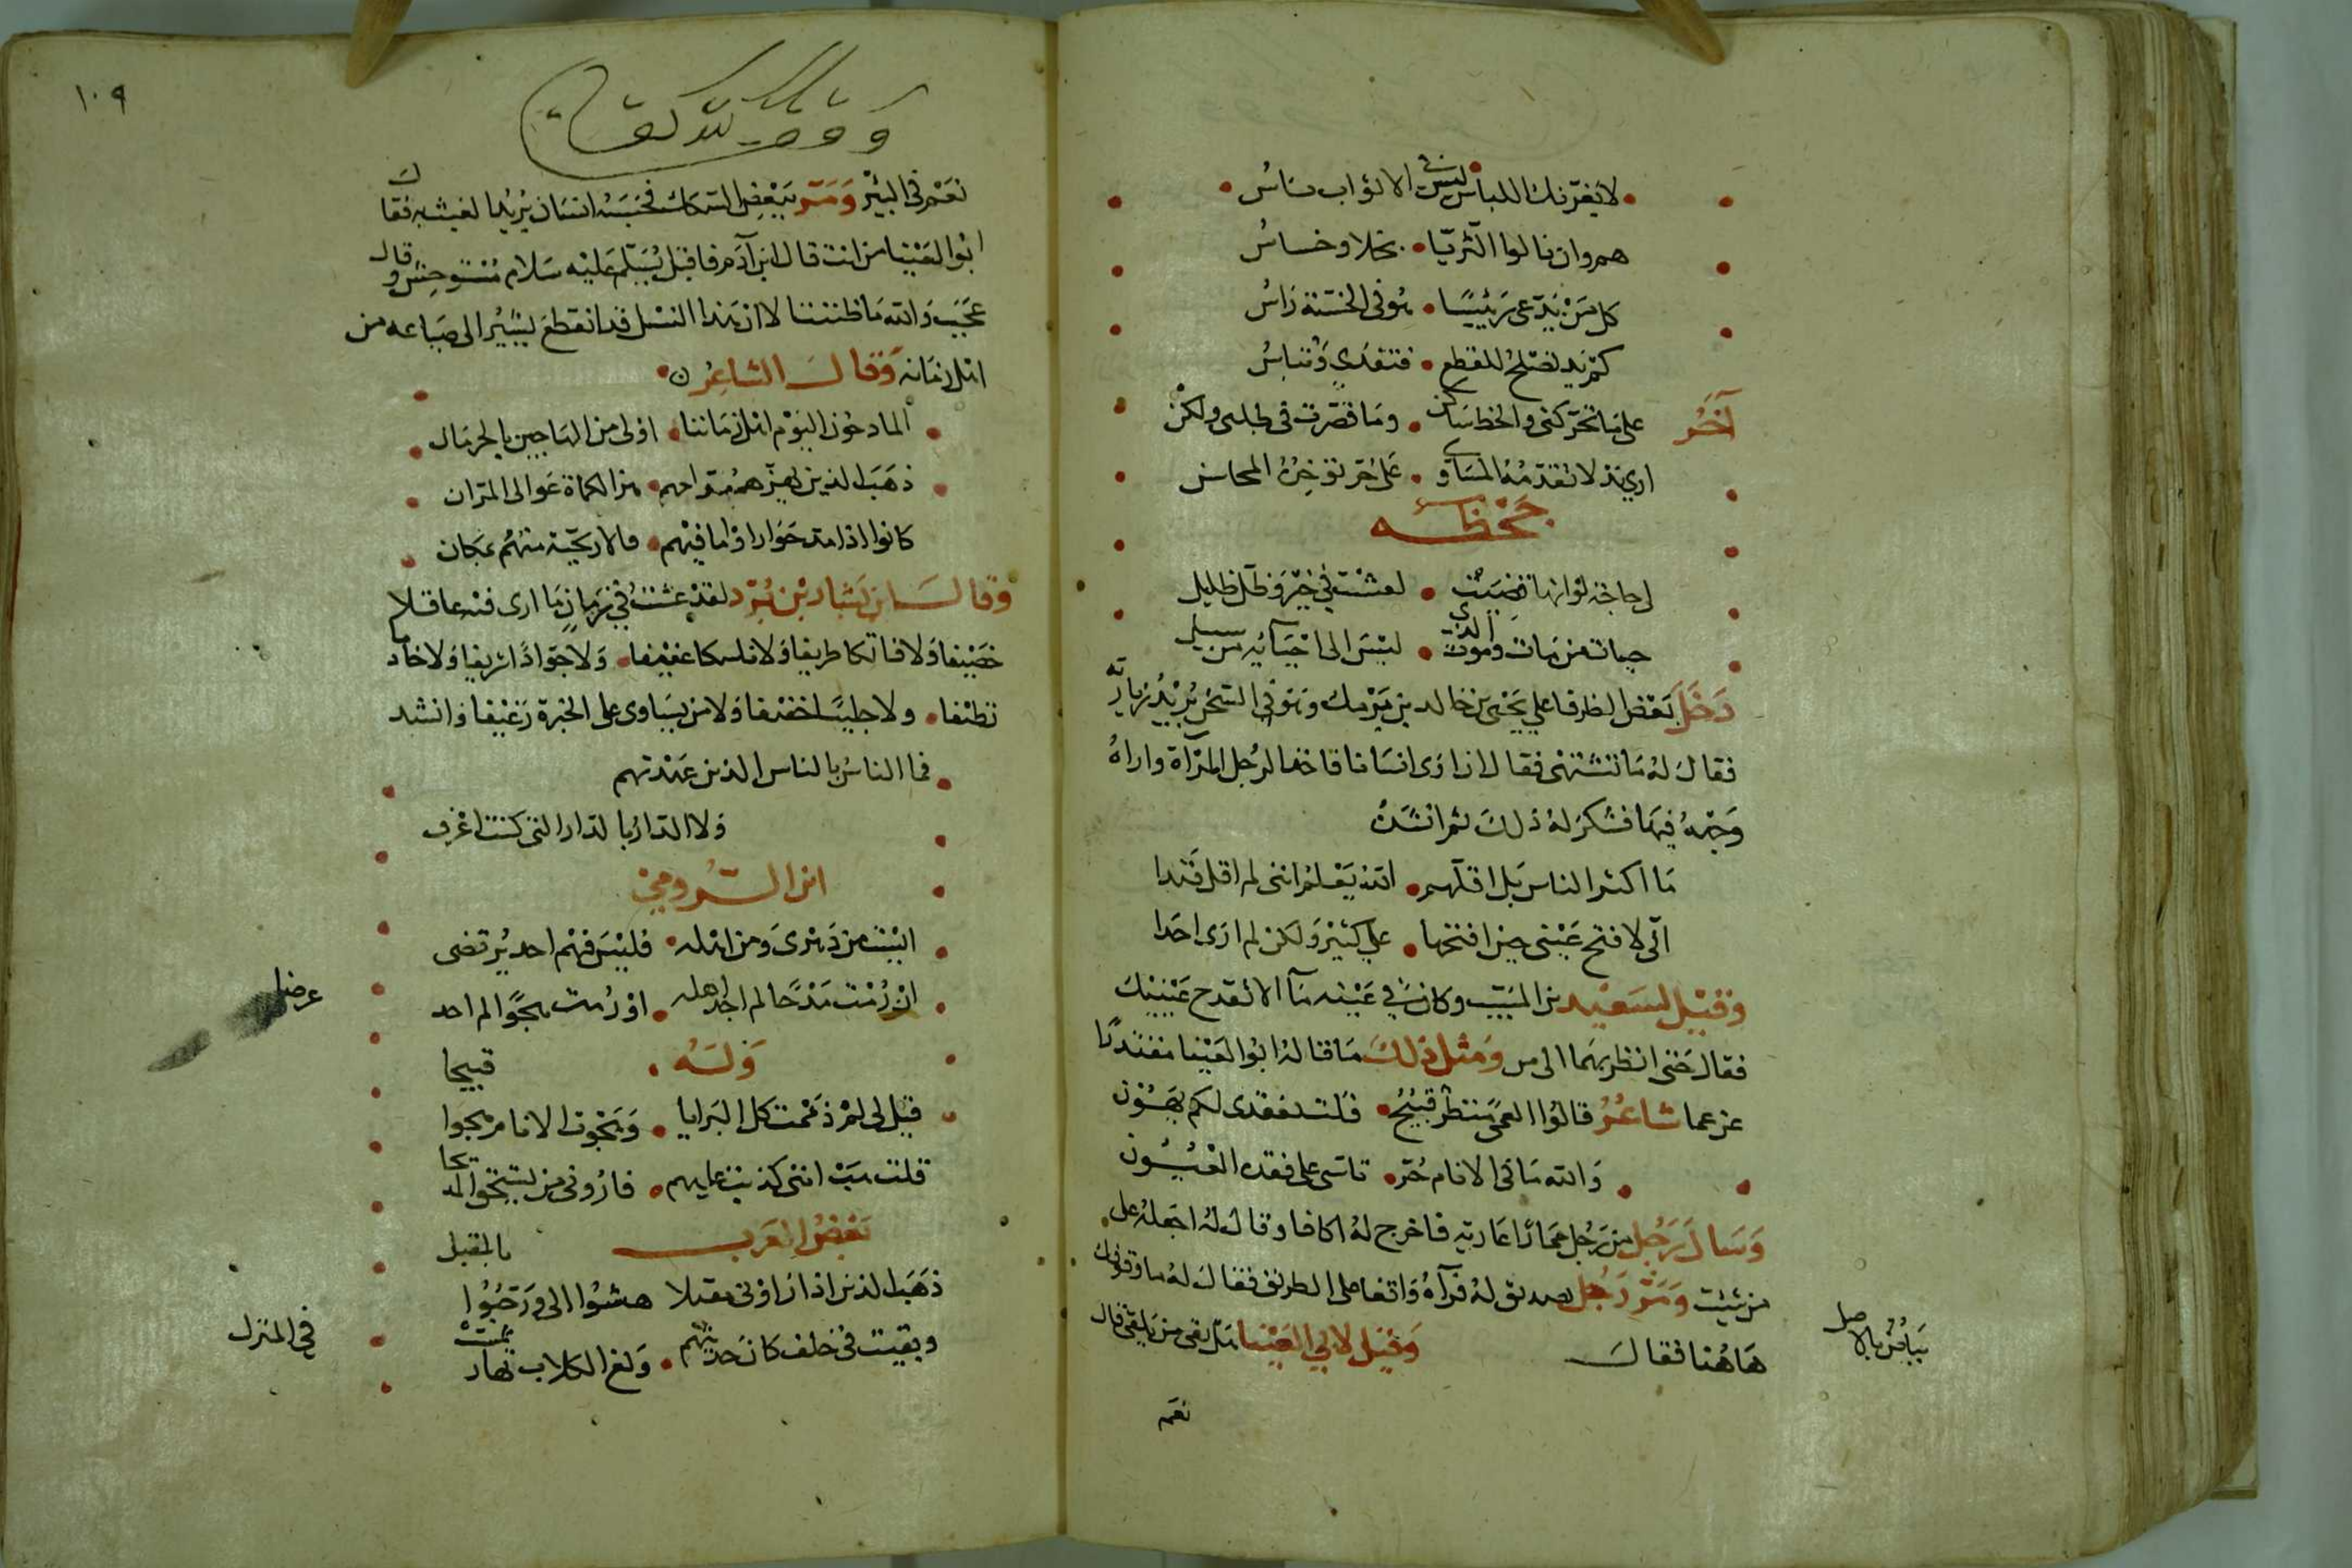 لا يغرنك اللباس ليس في الاثواب ناس
هم وان نالوا الثريا • بخلا وخساس
كل من يدعى رئيسا • هو في الخسة راس
كم يد تصلح للقطع • فتفدى وتباس
آخر على ما تحركنى والخط ساكن • وما قصرت في طلبى ولكن
ارى لا تقدمه المساوى • على حر توخره المحاسن
جحظه
لى حاجة لو انها قضيت • لعشت في خير وظل ظليل
حيات من مات وموت الذى • ليس الى احيائه من سبيل
دخل بعض الظرفا على يحيى بن خالد بن برمك وهو في السجن يريد زيارته
فقال له ما تشتهى فقال ان ارى انسانا فاخذ الرجل المرآة واراه
وجهه فيها فشكر له ذلك ثم انشد
ما اكثر الناس بل اقلهم • الله يعلم اننى لم اقل فندا
انى لافتح عينى حين افتحها • على كثير ولكن لم ارى احدا
وقيل لسعيد بن المسيب وكان في عينه مآ الا تقدح عينيك
فقال حتى انظر بهما الى من ومثل ذلك ما قاله ابو العينا معتذرا
عن عما شاعر قالوا العمى منظر قبيح • قلت لفقدى لكم يهون
والله ما في الانام حر • تاسى على فقده العيون
وسال رجل من رجل حمارا عارية فاخرج له اكافا وقال له اجعله على
من شئت ومر رجل بصديق له فرآه واقفا على الطريق فقال له ما وقوفك
هاهنا فقال
بياض بالاصل
وقيل لابي العينا هل بقى من يلقى قال
نعم
١٠٩
وقف لله تعالى
نعم في البئر ومر ببعض السكك فحبسه انسان يريد العبث به فقال
ابو العينا من انت قال ابن آدم فاقبل يسلم عليه سلام مستوحش وقال
عجب والله ما ظننت الا ان هذا النسل قد انقطع يشير الى ضياعه من
اهل زمانه وقال الشاعر ن
المادحون اليوم اهل زماننا • اولى من الهاجين بالحرمان
ذهب الذين يهزهم مداحهم • هز الكماة عوالى المران
كانوا اذا امتدحوا راوا ما فيهم • فالاريحية منهم بمكان
وقال بشار بن برد لقد عشت في زمان ما ارى فيه عاقلا
حصيفا ولا فاتكا طريفا ولا ناسكا عفيفا • ولا جوادا شريفا ولا خادما
نظيفا • ولا جليسا خفيفا ولا من يساوى على الخبرة رغيفا وانشد
فما الناس بالناس الذين عهدتهم
ولا الدار بالدار التى كنت اعرف
ابن الرومي
ابيت من دهرى ومن اهله • فليس فيهم احد يرتضى
ان رمت مدحا لم اجد اهله • او رمت هجوا لم اجد
عرضا
وله
قيل لى لم ذممت كل البرايا • وهجوت الانام هجوا
قبيحا
قلت هب اننى كذبت عليهم • فارونى من يستحق المديحا
بعض العرب
ذهب الذين اذا راونى مقبلا هشوا الى ورحبوا
بالمقبل
وبقيت في خلف كان حديثهم • ولغ الكلاب تهارشت
في المنزل